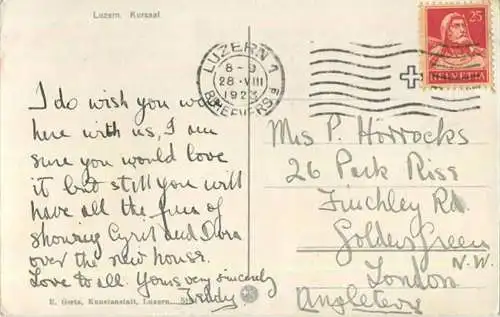 Luzern. Kursaal
LUZERN 1
8-9
28.VIII
1923
BRIEFVERS.
25
HELVETIA
I do wish you were
here with us, I am
sure you would love
it but still you will
have all the fun of
showing Cyril and Dora
over the new house.
Love to all. Yours very sincerely
Freddy
Mrs P. Horrocks
26 Park Rise
Finchley Rd.
Golders Green
N.W.
London
Angleterre
E. Goetz, Kunstanstalt, Luzern.